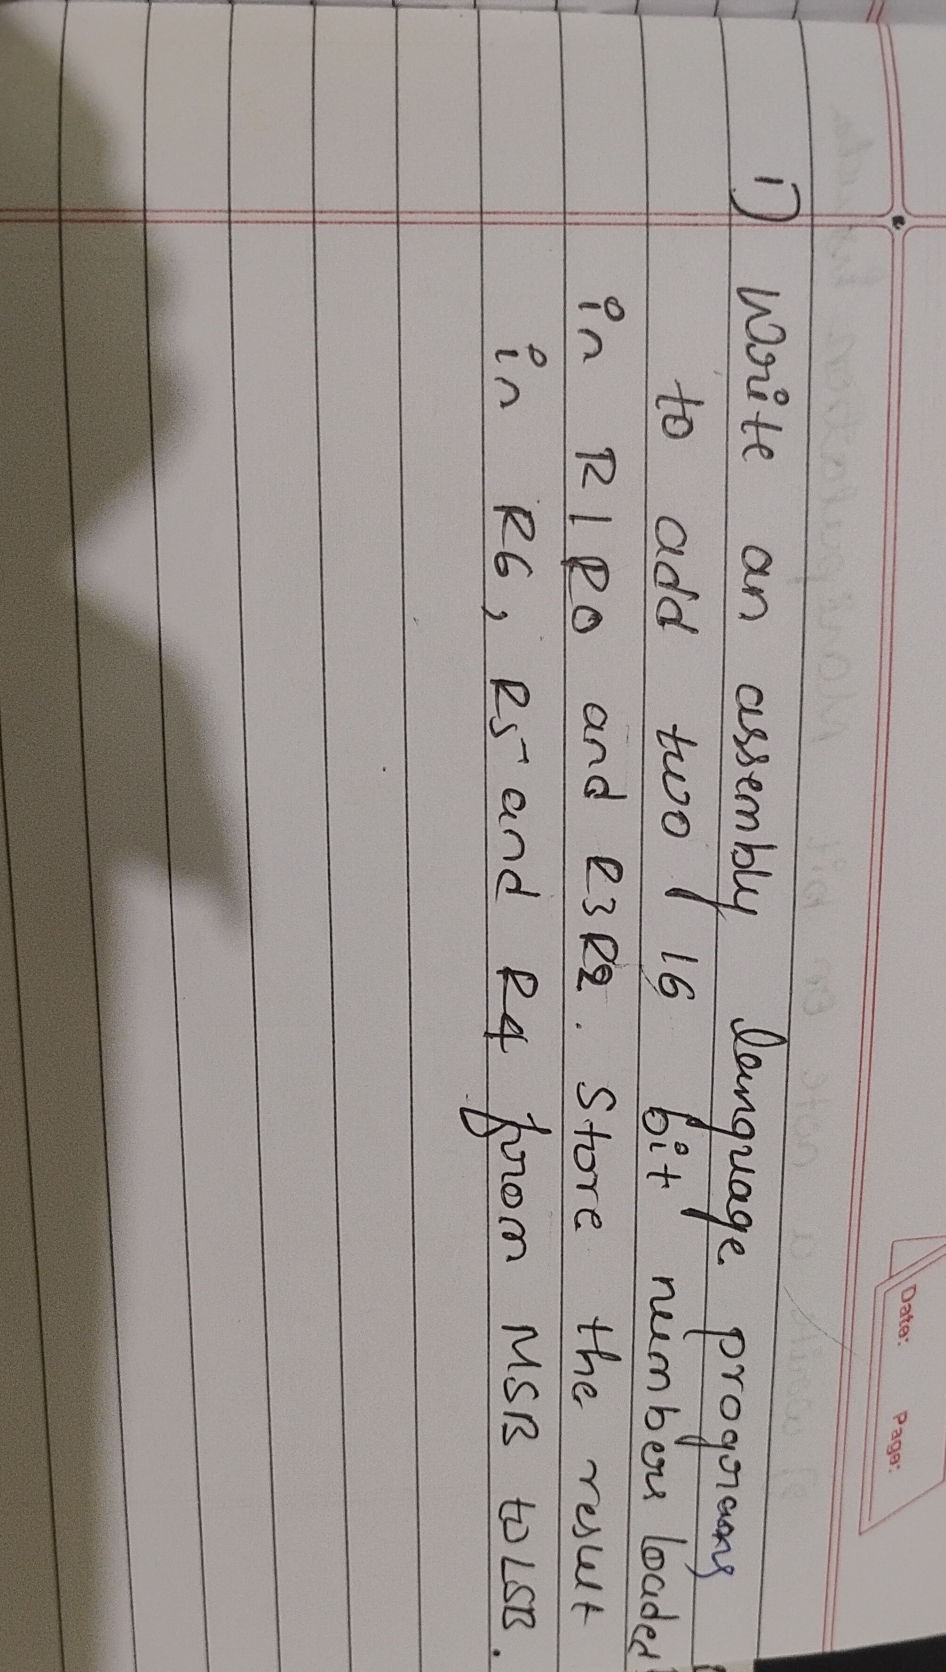 Date: Page:
1) Write an assembly language programs
to add two 16 bit numbers loaded
in R1R0 and R3R2. Store the result
in R6, R5 and R4 from MSB to LSB.